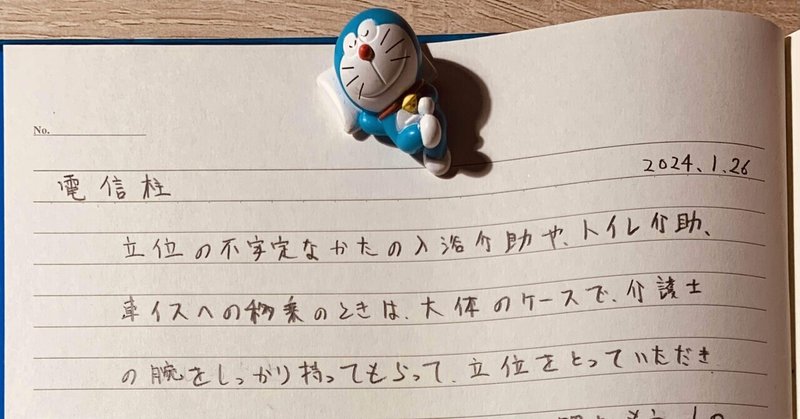 No.
2024.1.26
電信柱
立位の不安定なかたの入浴介助や、トイレ介助、
車イスへの移乗のときは、大体のケースで、介護士
の腕をしっかり持ってもらって、立位をとっていただき